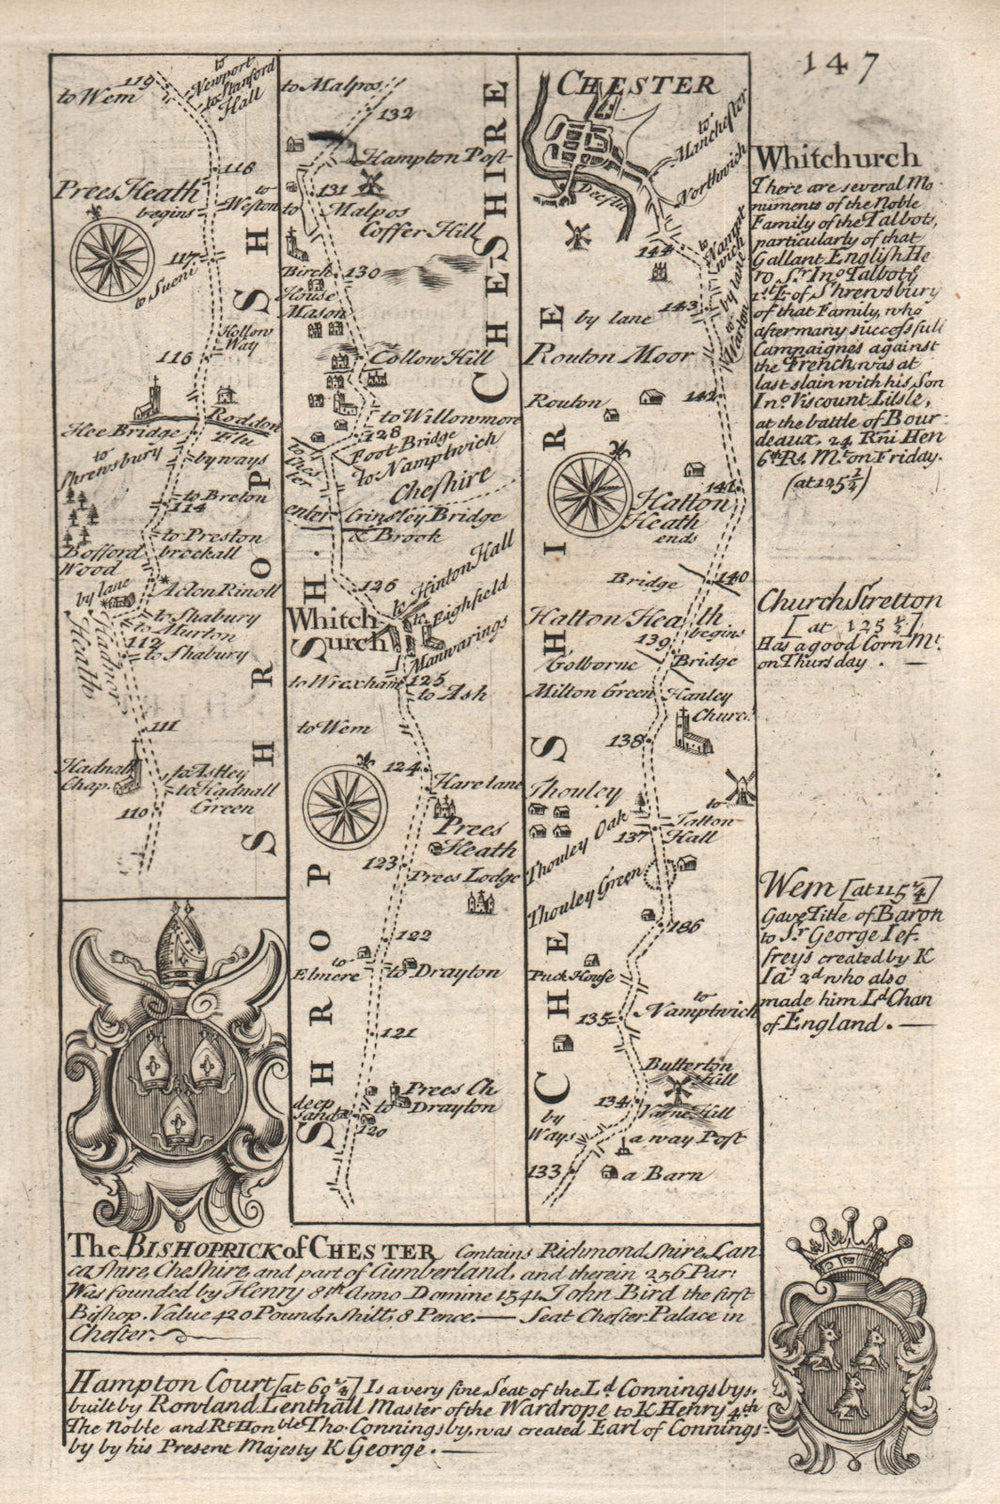 147
to Wem
119
to
Newport
to Stanford
Hall
118
Prees Heath
begins
to
Weston
117
to Sueni
Hollow
Way
116
Roddon
Flu
Hee Bridge
to
Shrewsbury
by ways
to Breton
114
to Preston
brockall
Bofford
Wood
Acton Rinoll
by lane
to Shabury
to Murton
112
to Shabury
Heath
111
Hadnall
Chap.
to Astley
to Hadnall
Green
110
SHROPSH
to Malpos
132
Hampton Post
131
to
Malpos
Coffer Hill
Birch
130
House
Mason
Collow Hill
to Willowmore
128
Foot Bridge
to Namptwich
to Ches
ter
Cheshire
enter
Grinsley Bridge
& Brook
126
to Hinton Hall
Whitch
urch
Highfield
Manwarings
to Wrexham
125
to Ash
to Wem
124
Hare lane
Prees
Heath
123
Prees Lodge
122
to
Elmere
to Drayton
121
Prees Ch
deep
Sand
to
Drayton
120
SHROPSH.
CHESHIRE
CHESTER
to
Manchester
Northwich
Dee flu
144
to
Nampt
wich
by lane
143
by lane
to
Warton
Routon Moor
142
Routon
141
Hatton
Heath
ends
Bridge
140
Hatton Heath
begins
139
Golborne
Bridge
Milton Green
Hanley
Church
138
Thouley
to
Tatton
Hall
Thouley Oak
137
Thouley Green
186
Puck House
to
Namptwich
135
Butterton
Hill
134
Varne Hill
by
Ways
a way Post
133
a Barn
CHESHIRE
Whitchurch
There are several Mo
numents of the Noble
Family of the Talbots,
particularly of that
Gallant English He
ro Sr. Ino. Talbot ye
1st E. of Shrewsbury
of that Family, who
after many successfull
Campaignes against
the French, was at
last slain with his Son
Ino. Viscount Lisle,
at the battle of Bour
deaux. 24 Rni Hen
6th Rs. Mt. on Friday.
(at 125 1/2)
Church Stretton
[at 125 1/2]
Has a good Corn Mt.
on Thursday. —
Wem [at 115 1/4]
Gave Title of Baron
to Sr George Ief-
freys created by K
Ia 2d who also
made him Ld Chan
of England. —
The BISHOPRICK of CHESTER Contains Richmondshire, Lan-
cashire, Cheshire, and part of Cumberland, and therein 256 Par:
Was founded by Henry 8th Anno Domine 1541. John Bird the first
Bishop. Value 420 Pound, 1 shill, 8 Pence. — Seat Chester Palace in
Chester.
Hampton Court [at 60 1/4] Is a very fine Seat of the Ld Conningsbys,
built by Rowland Lenthall Master of the Wardrope to K Henry 4th
The Noble and Rt Honble Tho. Conningsby, was created Earl of Connings-
by by his Present Majesty K George. —